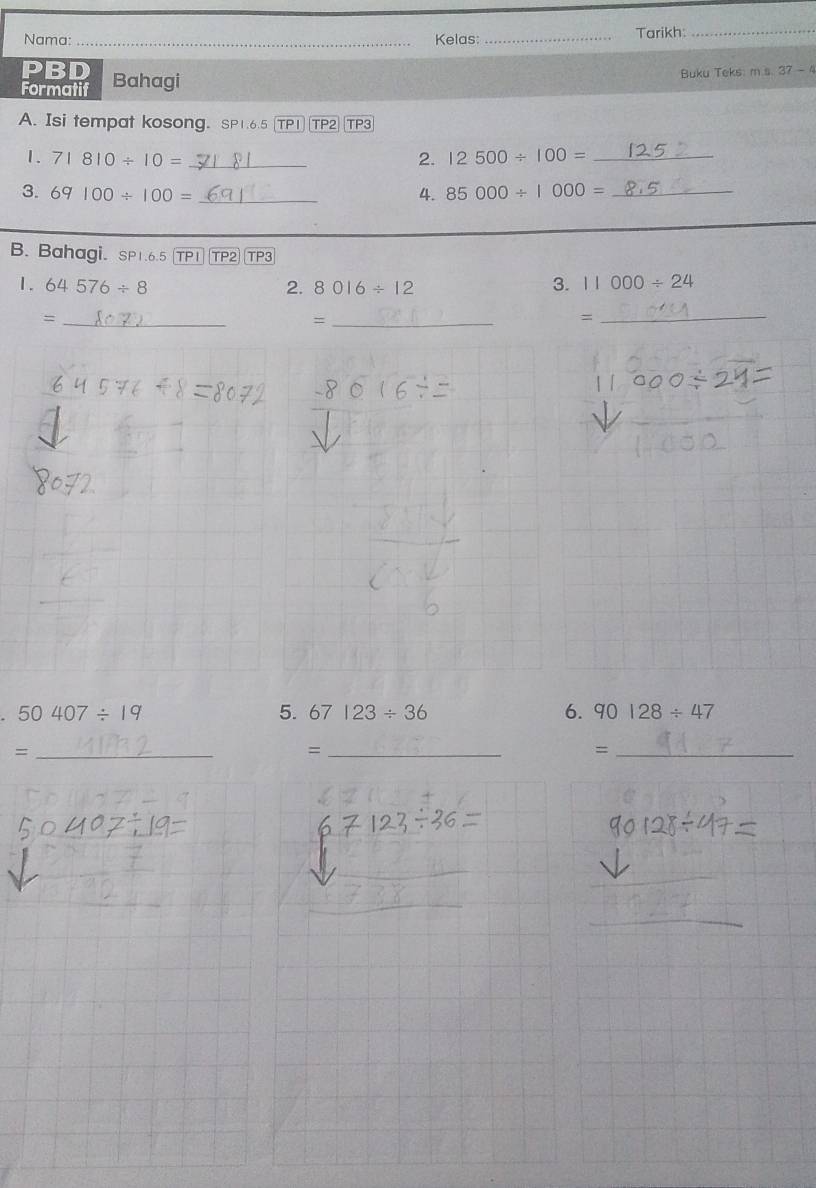 Nama: Kelas: Tarikh:
PBD Formatif Bahagi Buku Teks: m.s. 37 – 4
A. Isi tempat kosong. SP1.6.5 TP1 TP2 TP3
1. 71 810 ÷ 10 = 7181 2. 12 500 ÷ 100 = 125
3. 69 100 ÷ 100 = 691 4. 85 000 ÷ 1 000 = 8.5
B. Bahagi. SP1.6.5 TP1 TP2 TP3
1. 64 576 ÷ 8 2. 8 016 ÷ 12 3. 11 000 ÷ 24
= 8072 = =
64576 ÷ 8 = 8072 8016 ÷ = 11000 ÷ 24 =
1000
8072
6
. 50 407 ÷ 19 5. 67 123 ÷ 36 6. 90 128 ÷ 47
= = =
50407 ÷ 19 = 67123 ÷ 36 = 90128 ÷ 47 =
738